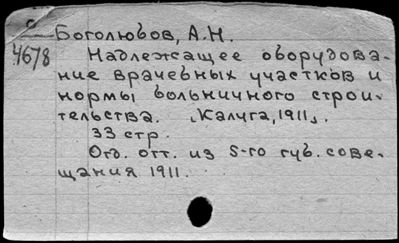 Боголюбов, А.Н.
4678
Надлежащее оборудова-
ние врачебных участков и
нормы больничного строи-
тельства. [Калуга, 1911].
33 стр.
Отд. отт. из 5-го губ. сове-
щания 1911.